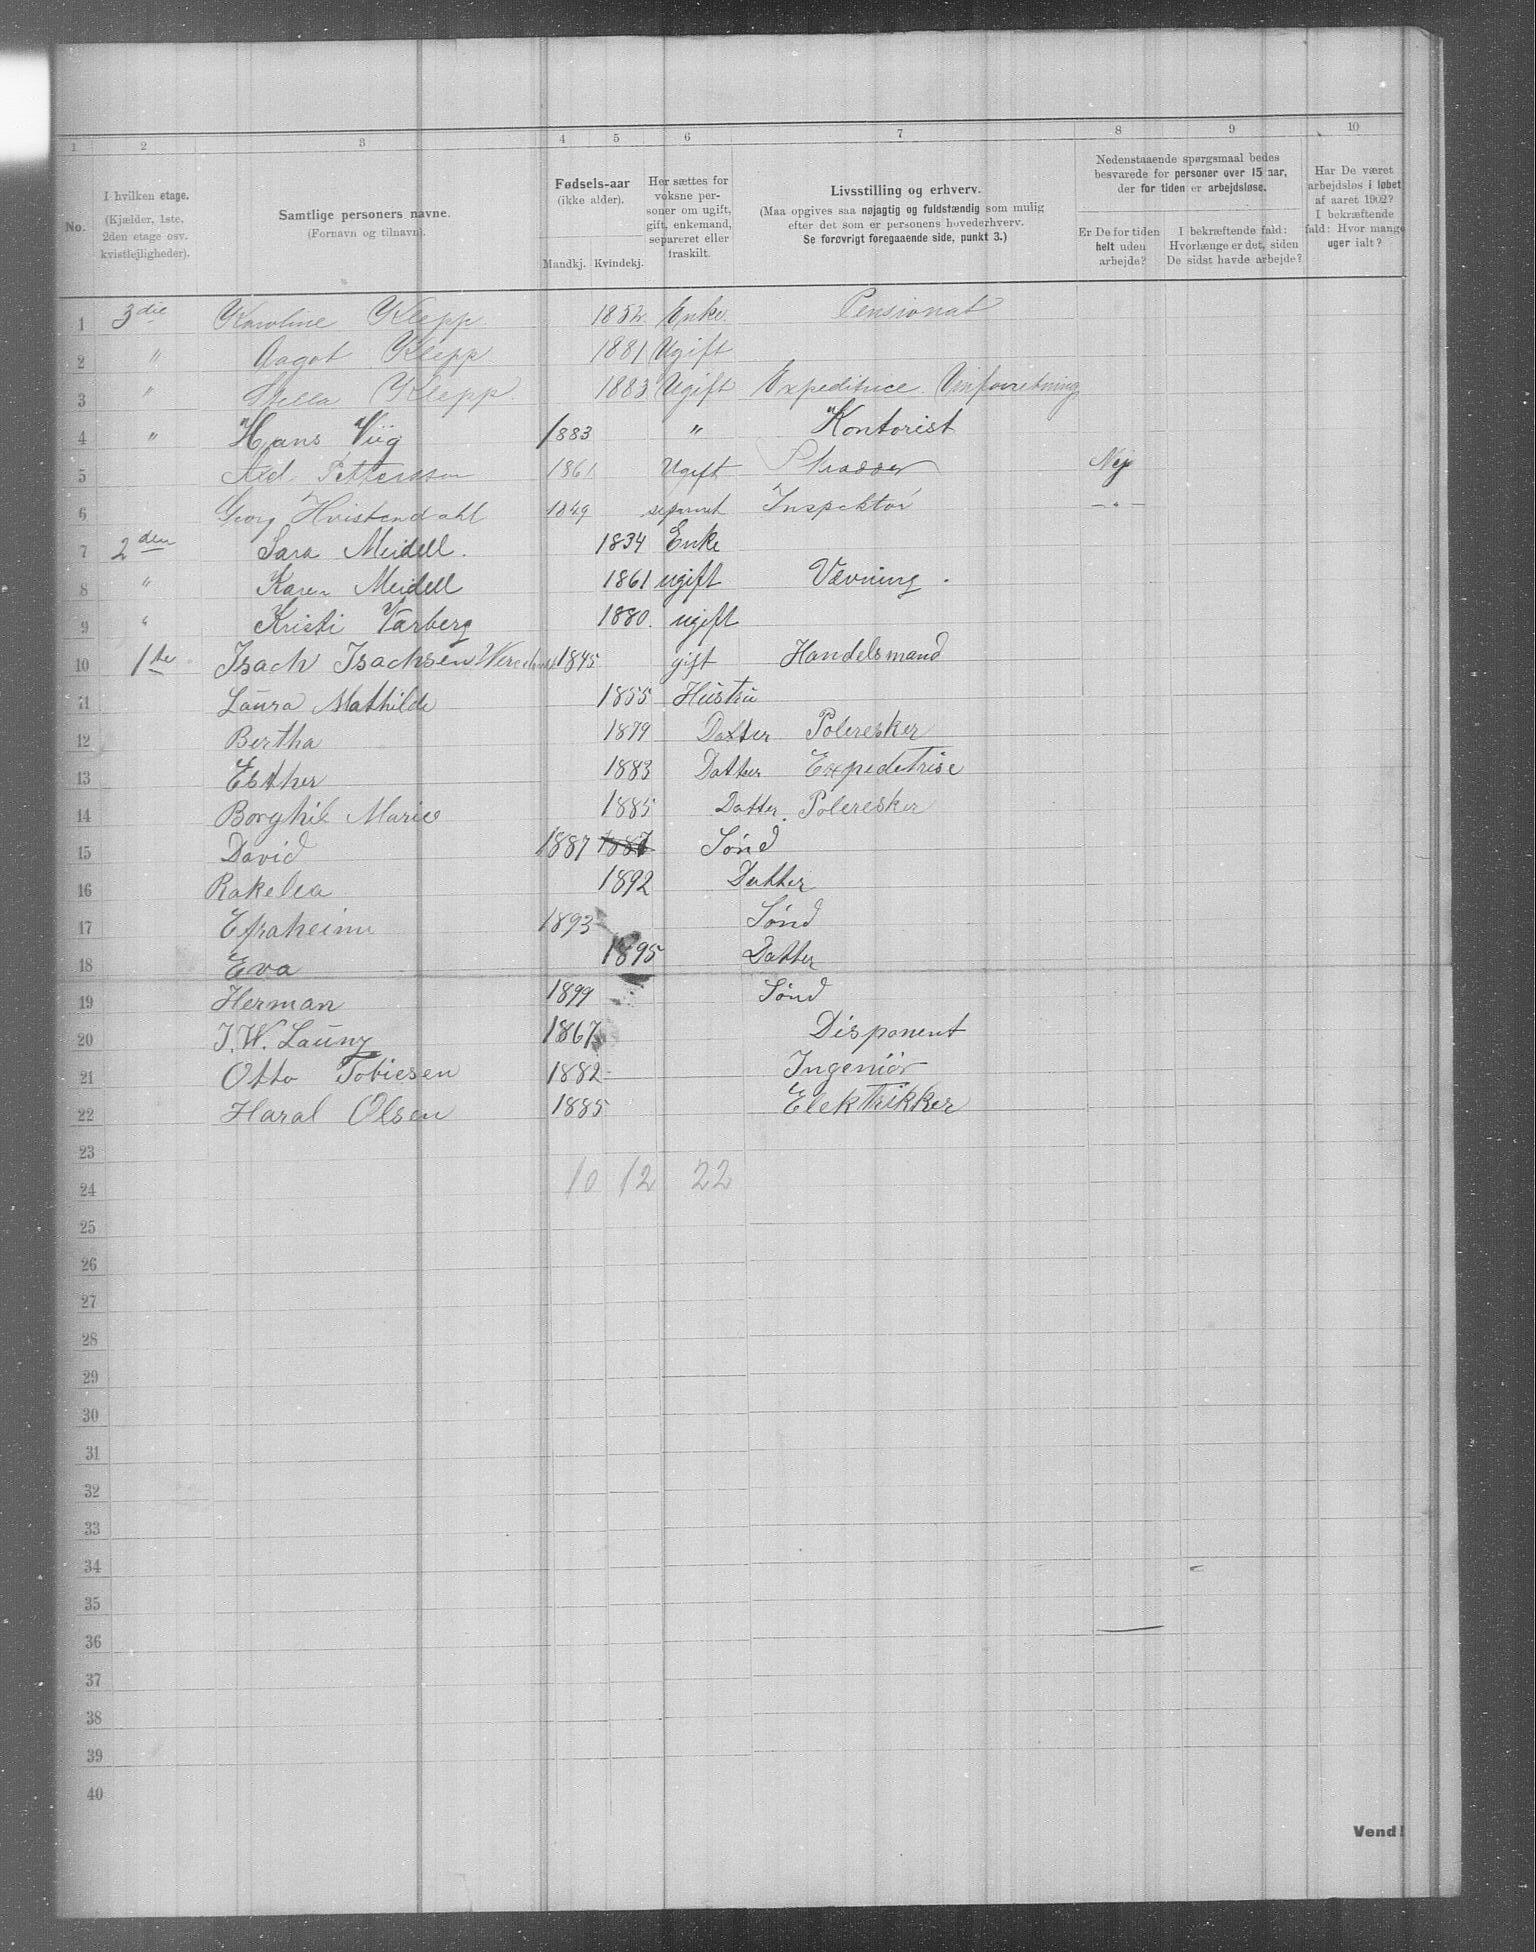 1 2 3 4 5 6 7 8 9 10
No.
I hvilken etage.
(Kjælder, 1ste,
2den etage osv.
kvistlejligheder).
Samtlige personers navne.
(Fornavn og tilnavn).
Fødsels-aar
(ikke alder).
Mandkj. Kvindekj.
Her sættes for
voksne per-
soner om ugift,
gift, enkemand,
separeret eller
fraskilt.
Livsstilling og erhverv.
(Maa opgives saa nøjagtig og fuldstændig som mulig
efter det som er personens hovederhverv.
Se forøvrigt foregaaende side, punkt 3.)
Nedenstaaende spørgsmaal bedes
besvarede for personer over 15 aar,
der for tiden er arbejdsløse.
Er De for tiden
helt uden
arbejde?
I bekræftende fald:
Hvorlænge er det, siden
De sidst havde arbejde?
Har De været
arbejdsløs i løbet
af aaret 1902?
I bekræftende
fald: Hvor mange
uger ialt?
1 3die Karoline Klepp 1852 Enke. Pensionat
2 " Aagot Klepp 1881 Ugift
3 " Klepp 1883 Ugift Expeditrice
4 " Hans Viig 1883 " Kontorist
5 Axl. Pettersson 1861 Ugift Nej
6 Georg Hvistendahl 1849 separeret Inspektør -"-
7 2den Sara Meidell. 1834 Enke
8 " Karen Meidell 1861 ugift Vævning.
9 " Kristi Varberg 1880. ugift
10 1ste Isach Isachsen 1845 gift Handelsmand
11 Laura Mathilde 1855 Hustru
12 Bertha 1879 Datter Poleresker
13 Esther 1883 Datter Expedetrise
14 Borghil Marie 1885 Datter. Poleresker
15 David 1887 1887 Sønd
16 Rakelea 1892 Datter
17 Efraheim 1893 Sønd
18 Eva 1895 Datter
19 Herman 1899 Sønd
20 J.W. Launy 1867 Disponent
21 Otto Tobiesen 1882 Ingeniør
22 Haral Olsen 1885 Elektrikker
23
24 10 12 22
25
26
27
28
29
30
31
32
33
34
35
36
37
38
39
40
Vend!